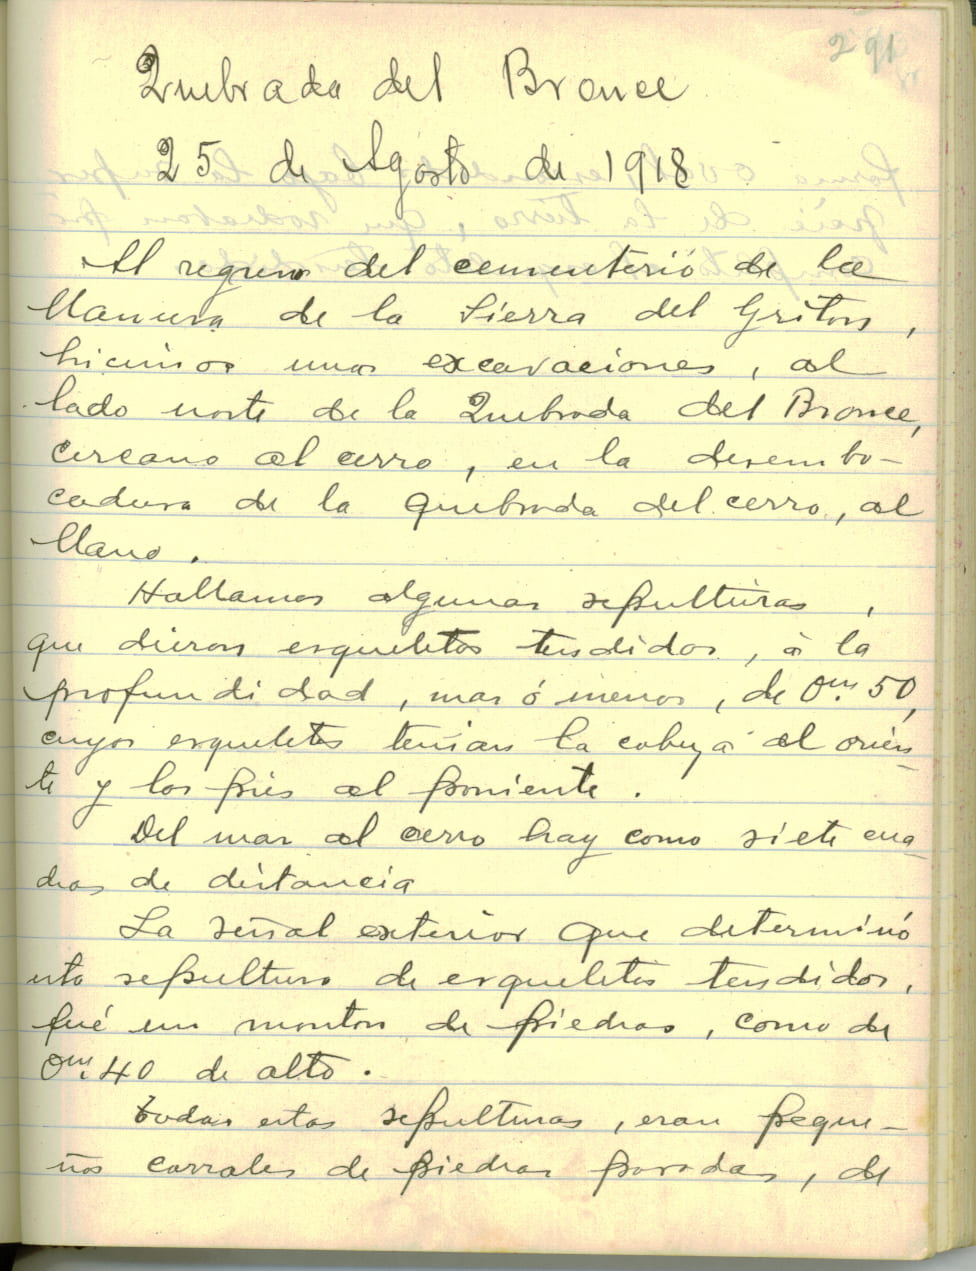 291
Quebrada del Bronce
25 de Agosto de 1918
Al regreso del cementerio de la
llanura de la Sierra del Griton,
hicimos unas excavaciones, al
lado norte de la Quebrada del Bronce,
cercano al cerro, en la desembo-
cadura de la quebrada del cerro, al
llano.
Hallamos algunas sepulturas,
que dieron esqueletos tendidos, á la
profundidad, mas ó menos, de 0m. 50,
cuyos esqueletos tenian la cabeza al orien-
te y los piés al poniente.
Del mar al cerro hay como siete cua-
dras de distancia
La señal exterior que determinó
esta sepultura de esqueletos tendidos,
fué un monton de piedras, como de
0m. 40 de alto.
Todas estas sepulturas, eran peque-
ños corrales de piedras paradas, de